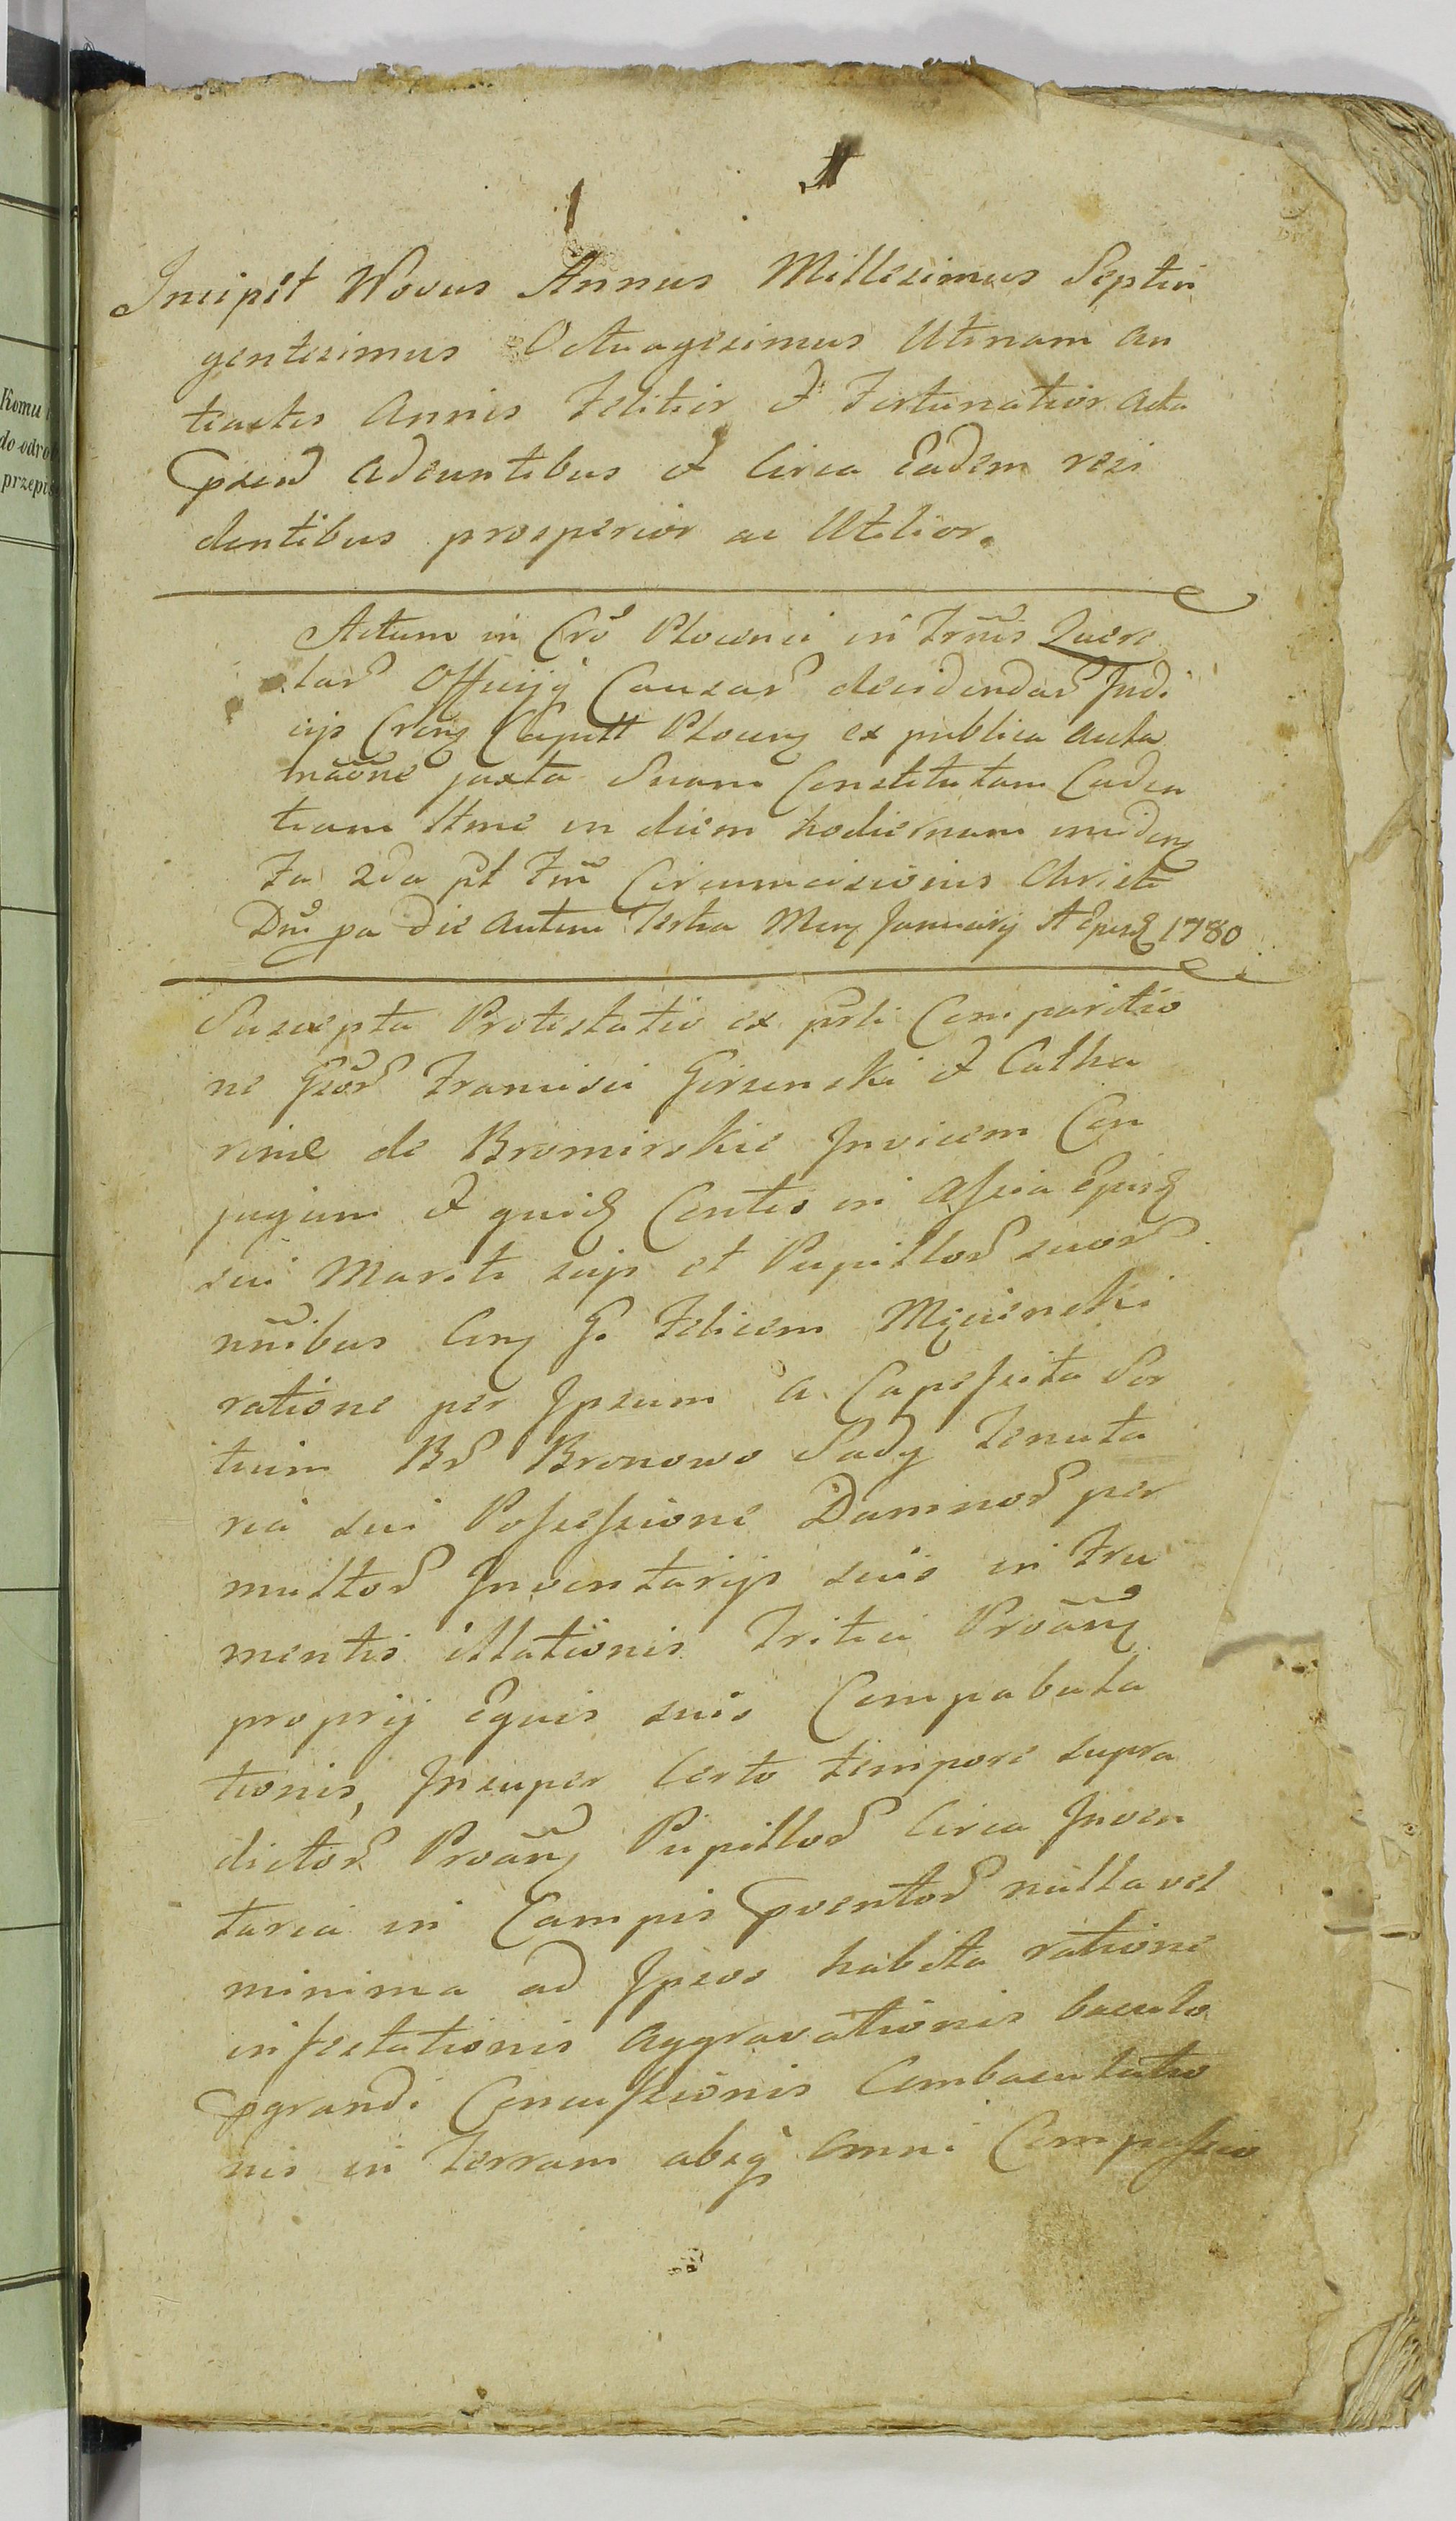 Komu
do odro
przepis
1
Incipit Novus Annus Millesimus Septin
gentesimus Octuagesimus Utinam an
teactis Annis Felitior et Fortunatior Acta
pxnd Adeuntibus et Circa Eadem resi
dentibus prosperior ac Utilior.
Actum in Crō Plocensi in Trm̃is Quere
lar Officijq Causar decidendar Judi
cijs Creng Capitt Ploceng ex publica auda
mãõne juxta Suam Constitutam Caden
tiam Itme in diem hodiernam incideng
Fa 2da pt Fm̃ Circumcisionis Christi
Dni pa die autem Tertia Meng January A Epusq 1780
Suscepta Protestatio ex prli Comparitio
ne Gsor Francisci Gorzenski et Catha
rinæ de Bromirskie Invicem Con
jugum et quidq Contes in assia Epusq
sui Mariti suis et Pupillor suor
nñibus Cong G. Felicem Mycienski
ratione per Ipsum a Capessita Sor
tium Br Bronowo Sady Tenuta
ria sui Possessione Damnor per
multor Inventarijs suis in Fru
mentis illationis Tritici Proãng
proprij Equis suis Compabula
tionis, Insuper Certo tempore supra
dictor Proãng Pupillor Circa Inven
taria in Campis pventor nulla vel
minima ad Ipsos habita ratione
infestationis Aggravationis baculo
pgrandi Concussionis Combaculatio
nis in Terram absq omni Compassio